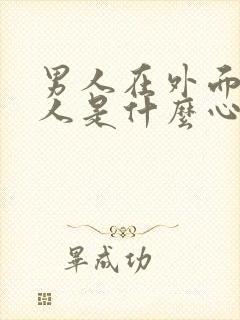 男人在外面
人是什麼心
畢成功